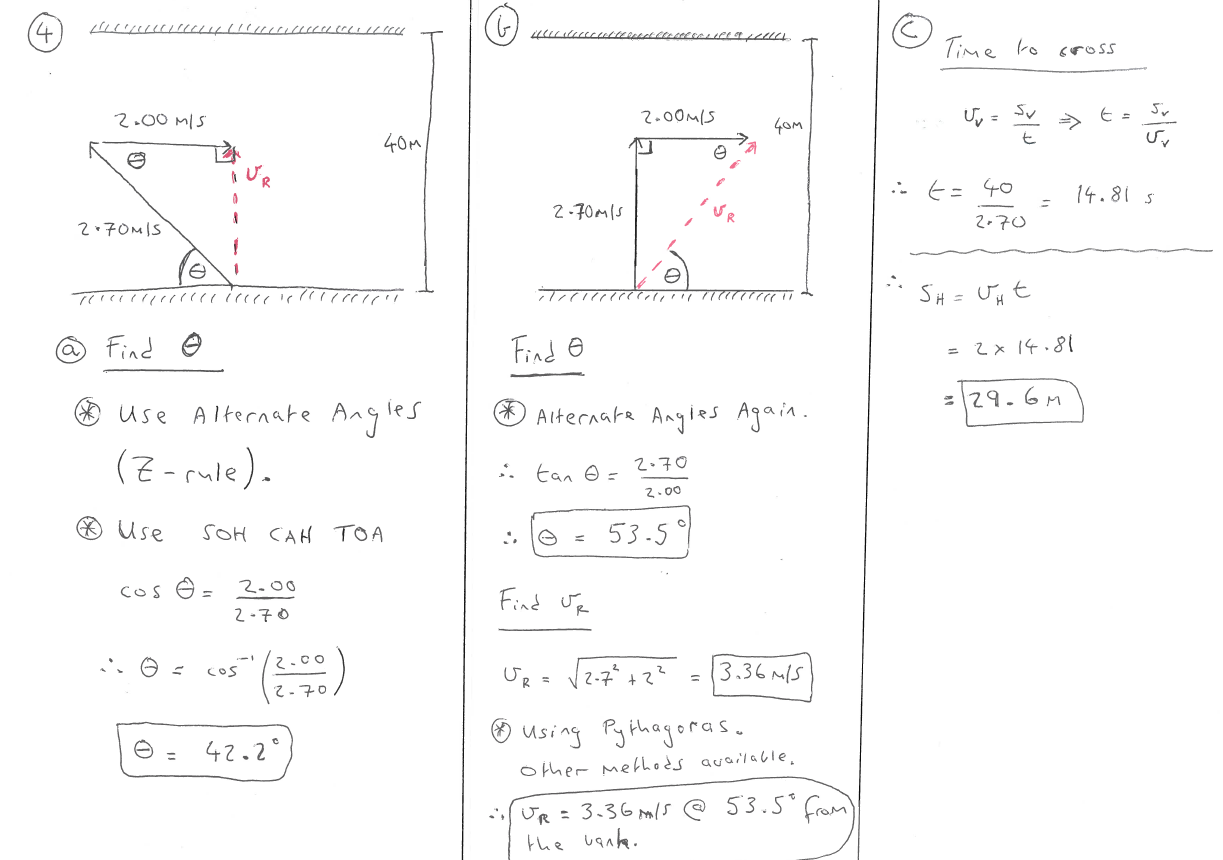 4
2.00 m/s
θ
40m
v_R
2.70m/s
θ
a Find θ
* Use Alternate Angles
(Z-rule).
* Use SOH CAH TOA
cos θ = 2.00/2.70
∴ θ = cos⁻¹(2.00/2.70)
θ = 42.2°
b
2.00m/s
40m
θ
2.70m/s
v_R
θ
Find θ
* Alternate Angles Again.
∴ tan θ = 2.70/2.00
∴ θ = 53.5°
Find v_R
v_R = √(2.7² + 2²) = 3.36 m/s
* Using Pythagoras.
Other methods available.
∴ v_R = 3.36 m/s @ 53.5° from
the bank.
c
Time to cross
v_v = s_v/t ⇒ t = s_v/v_v
∴ t = 40/2.70 = 14.81 s
∴ s_H = v_H t
= 2 × 14.81
= 29.6m